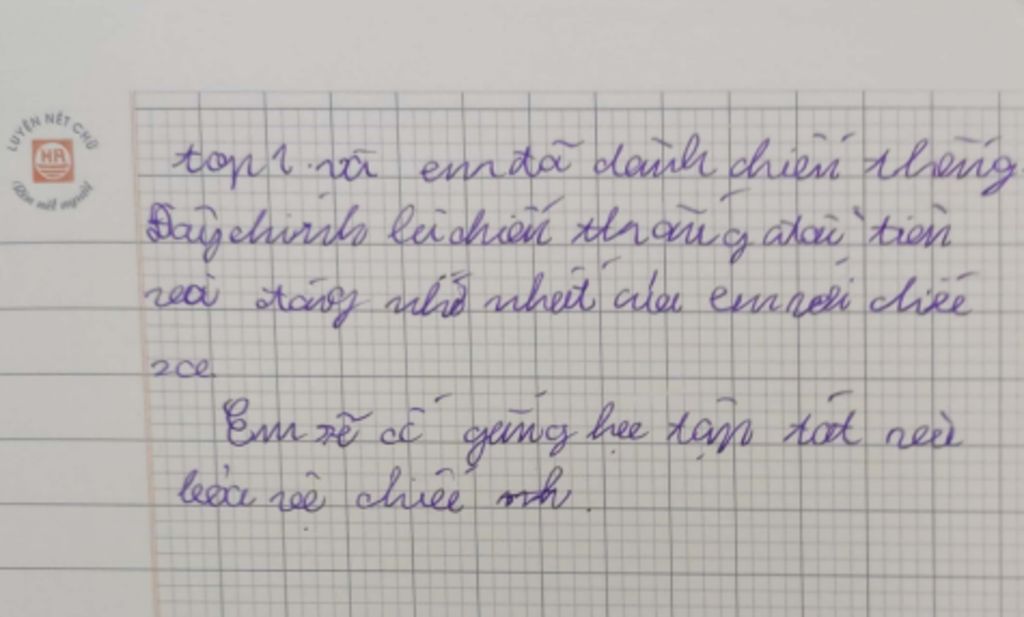 LUYỆN NÉT CHỮ
HA
top 1. và em đã dành chiến thắng.
Đây chính là chiến thắng đầu tiên
và đáng nhớ nhất của em với chiếc
xe
Em sẽ cố gắng học tập tốt và
bảo vệ chiếc